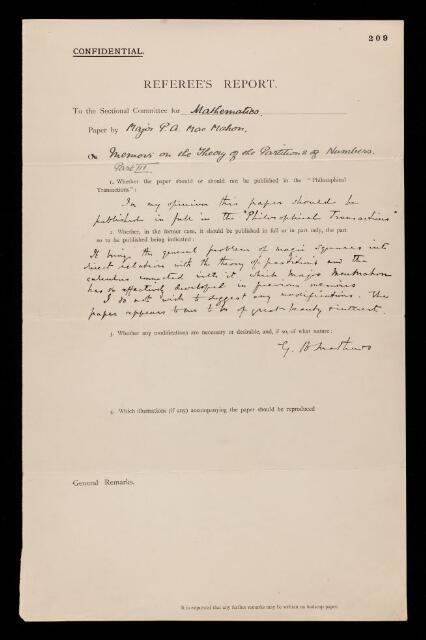 209
CONFIDENTIAL.
REFEREE'S REPORT.
To the Sectional Committee for Mathematics.
Paper by Major P. A. Mac Mahon.
On Memoir on the Theory of the Partitions of Numbers.
Part III.
1. Whether the paper should or should not be published in the "Philosophical
Transactions":
In my opinion this paper should be
published in full in the "Philosophical Transactions"
2. Whether, in the former case, it should be published in full or in part only, the part
so to be published being indicated:
It brings the general problem of magic squares into
direct relation with the theory of partitions and the
calculus connected with it which Major MacMahon
has so effectively developed in previous memoirs
I do not wish to suggest any modifications. The
paper appears to me to be of great beauty & interest.
3. Whether any modifications are necessary or desirable, and, if so, of what nature:
G. B. Mathews
4. Which illustrations (if any) accompanying the paper should be reproduced
General Remarks.
It is requested that any further remarks may be written on foolscap paper.